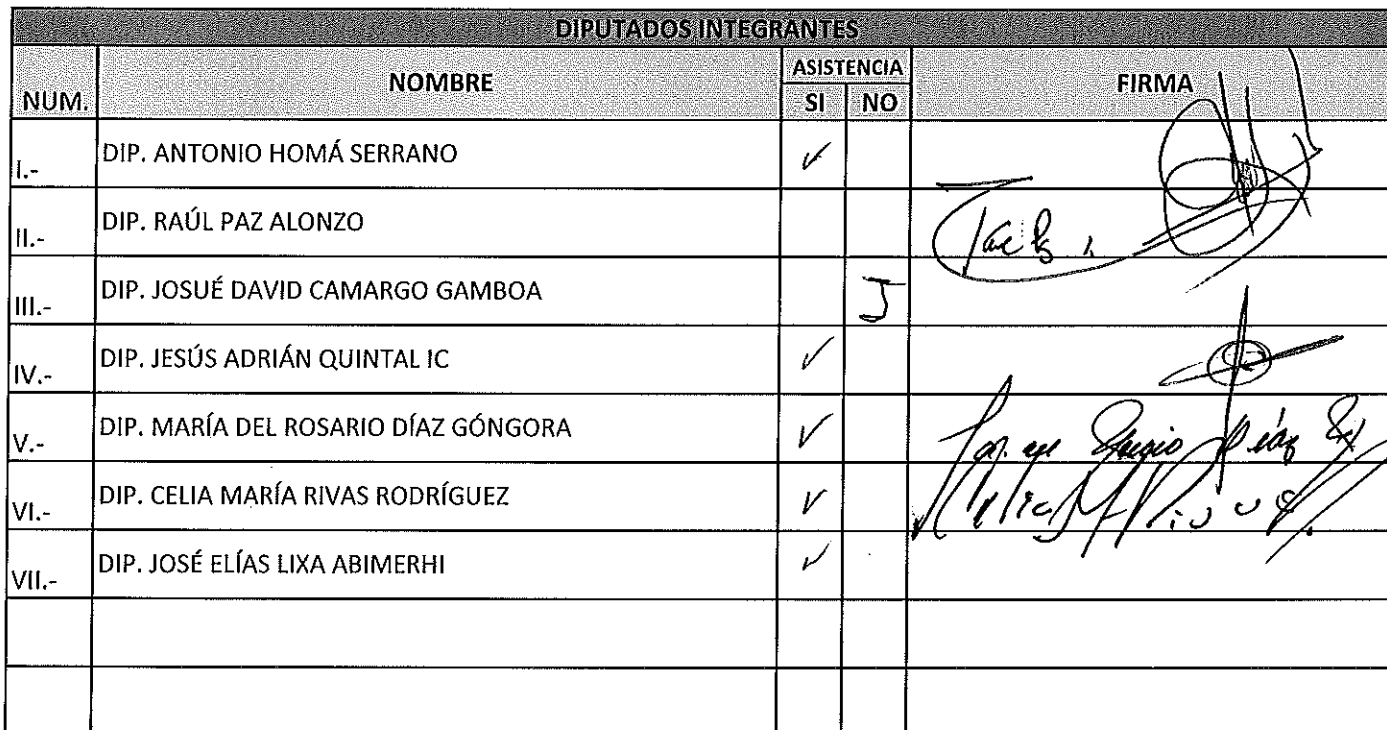 DIPUTADOS INTEGRANTES
NUM. NOMBRE ASISTENCIA FIRMA
SI NO
I.- DIP. ANTONIO HOMÁ SERRANO ✓
II.- DIP. RAÚL PAZ ALONZO
III.- DIP. JOSUÉ DAVID CAMARGO GAMBOA J
IV.- DIP. JESÚS ADRIÁN QUINTAL IC ✓
V.- DIP. MARÍA DEL ROSARIO DÍAZ GÓNGORA ✓
VI.- DIP. CELIA MARÍA RIVAS RODRÍGUEZ ✓
VII.- DIP. JOSÉ ELÍAS LIXA ABIMERHI ✓